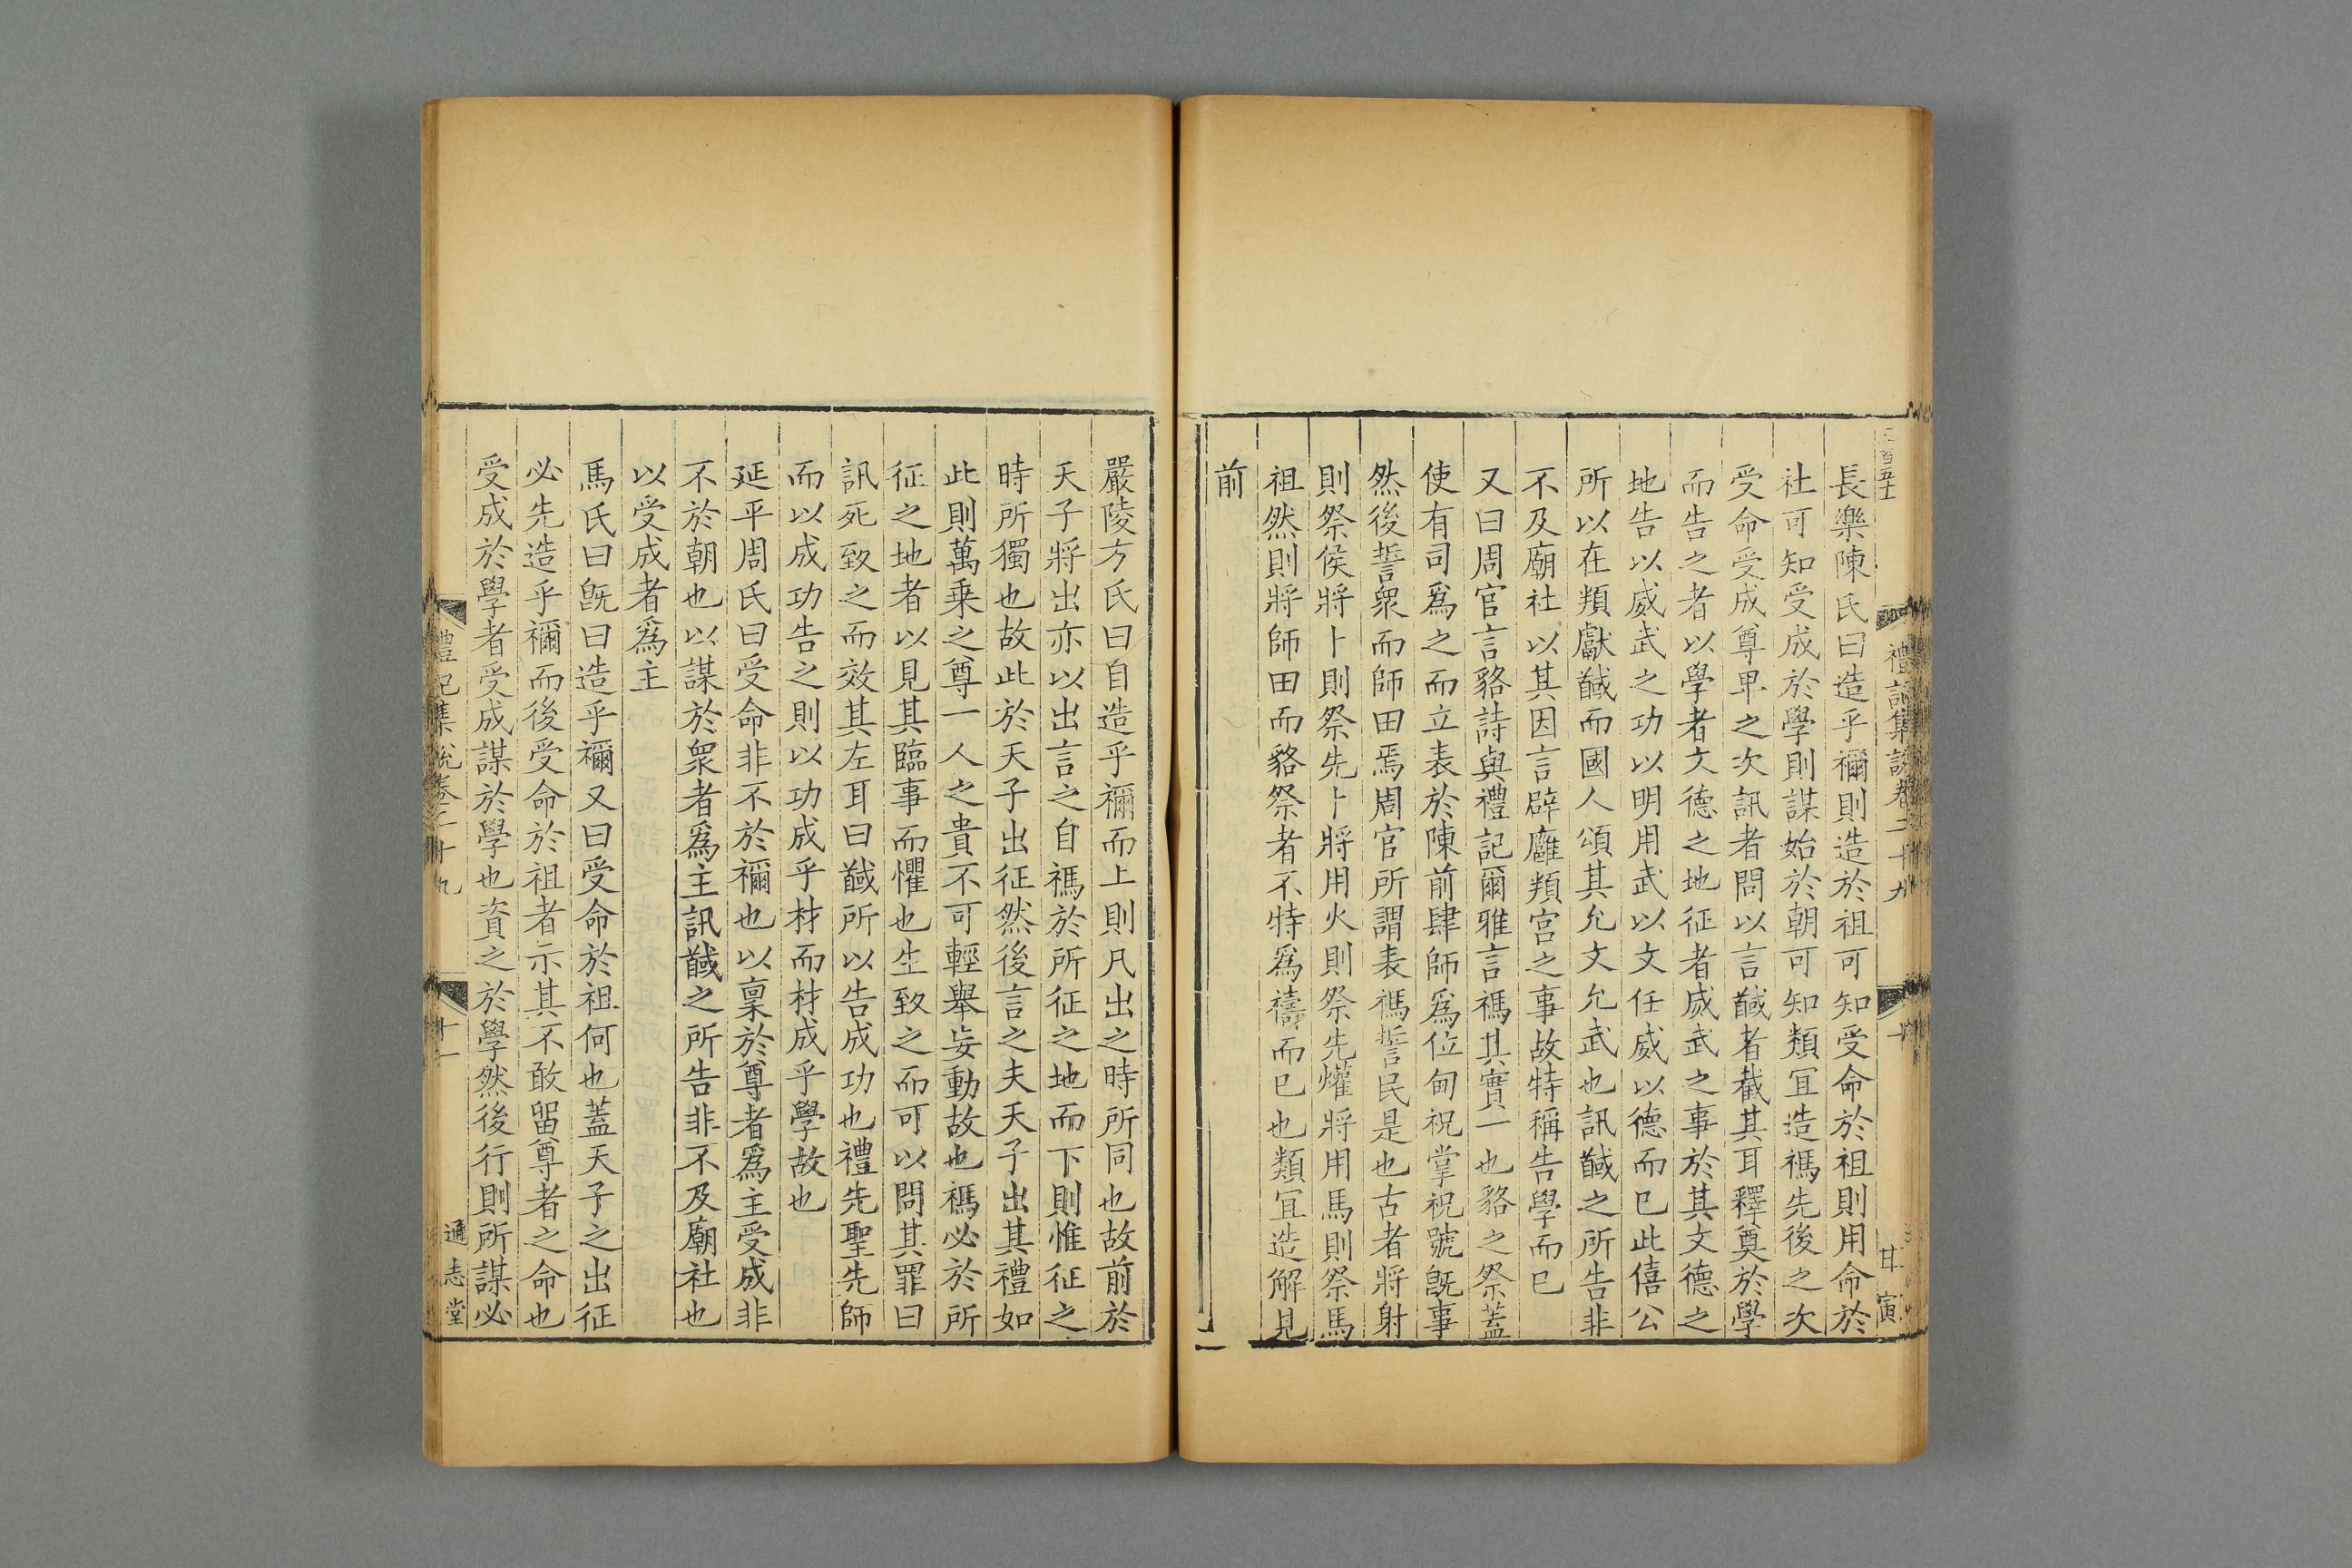 禮記集說卷二十九
長樂陳氏曰造乎禰則造於祖可知受命於祖則用命於
社可知受成於學則謀始於朝可知類宜造禡先後之次
受命受成尊卑之次訊者問以言馘者截其耳釋奠於學
而告之者以學者文德之地征者威武之事於其文德之
地告以威武之功以明用武以文任威以德而已此僖公
所以在頖獻馘而國人頌其允文允武也訊馘之所告非
不及廟社以其因言辟廱頖宮之事故特稱告學而已
又曰周官言貉詩與禮記爾雅言禡其實一也貉之祭蓋
使有司爲之而立表於陳前肆師爲位甸祝掌祝號旣事
然後誓衆而師田焉周官所謂表禡誓民是也古者將射
則祭侯將卜則祭先卜將用火則祭先爟將用馬則祭馬
祖然則將師田而貉祭者不特爲禱而已也類宜造解見
前
嚴陵方氏曰自造乎禰而上則凡出之時所同也故前於
天子將出亦以出言之自禡於所征之地而下則惟征之
時所獨也故此於天子出征然後言之夫天子出其禮如
此則萬乗之尊一人之貴不可輕舉妄動故也禡必於所
征之地者以見其臨事而懼也生致之而可以問其罪曰
訊死致之而效其左耳曰馘所以告成功也禮先聖先師
而以成功告之則以功成乎材而材成乎學故也
延平周氏曰受命非不於禰也以稟於尊者爲主受成非
不於朝也以謀於衆者爲主訊馘之所告非不及廟社也
以受成者爲主
馬氏曰旣曰造乎禰又曰受命於祖何也蓋天子之出征
必先造乎禰而後受命於祖者示其不敢留尊者之命也
受成於學者受成謀於學也資之於學然後行則所謀必
禮記集說卷二十九
十一
通志堂